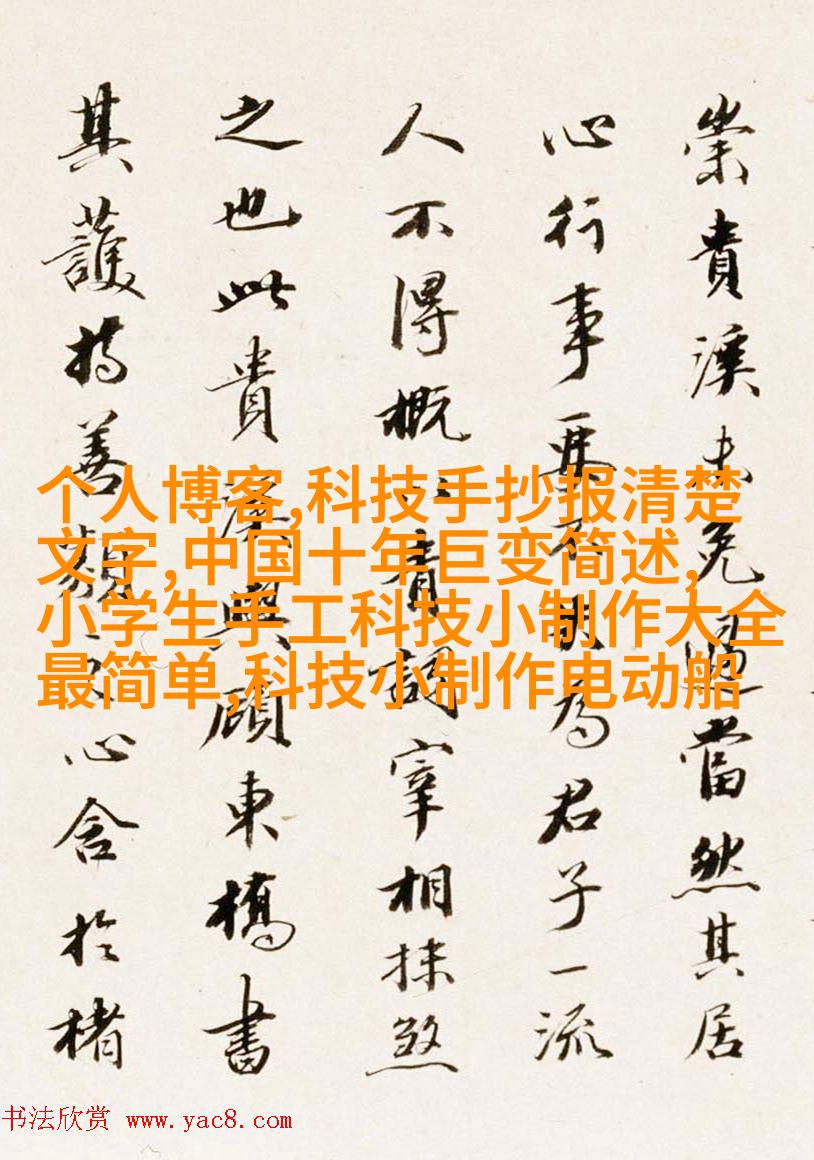 貴溪未免當然其居
心行事要不失為君子一流
人不得概以青詞宰相抹煞
之也此貴溪與顧東橋書
其護持善類之心含於楮
个人博客,科技手抄报清楚
文字,中国十年巨变简述,
小学生手工科技小制作大全
最简单,科技小制作电动船
书法欣赏 www.yac8.com